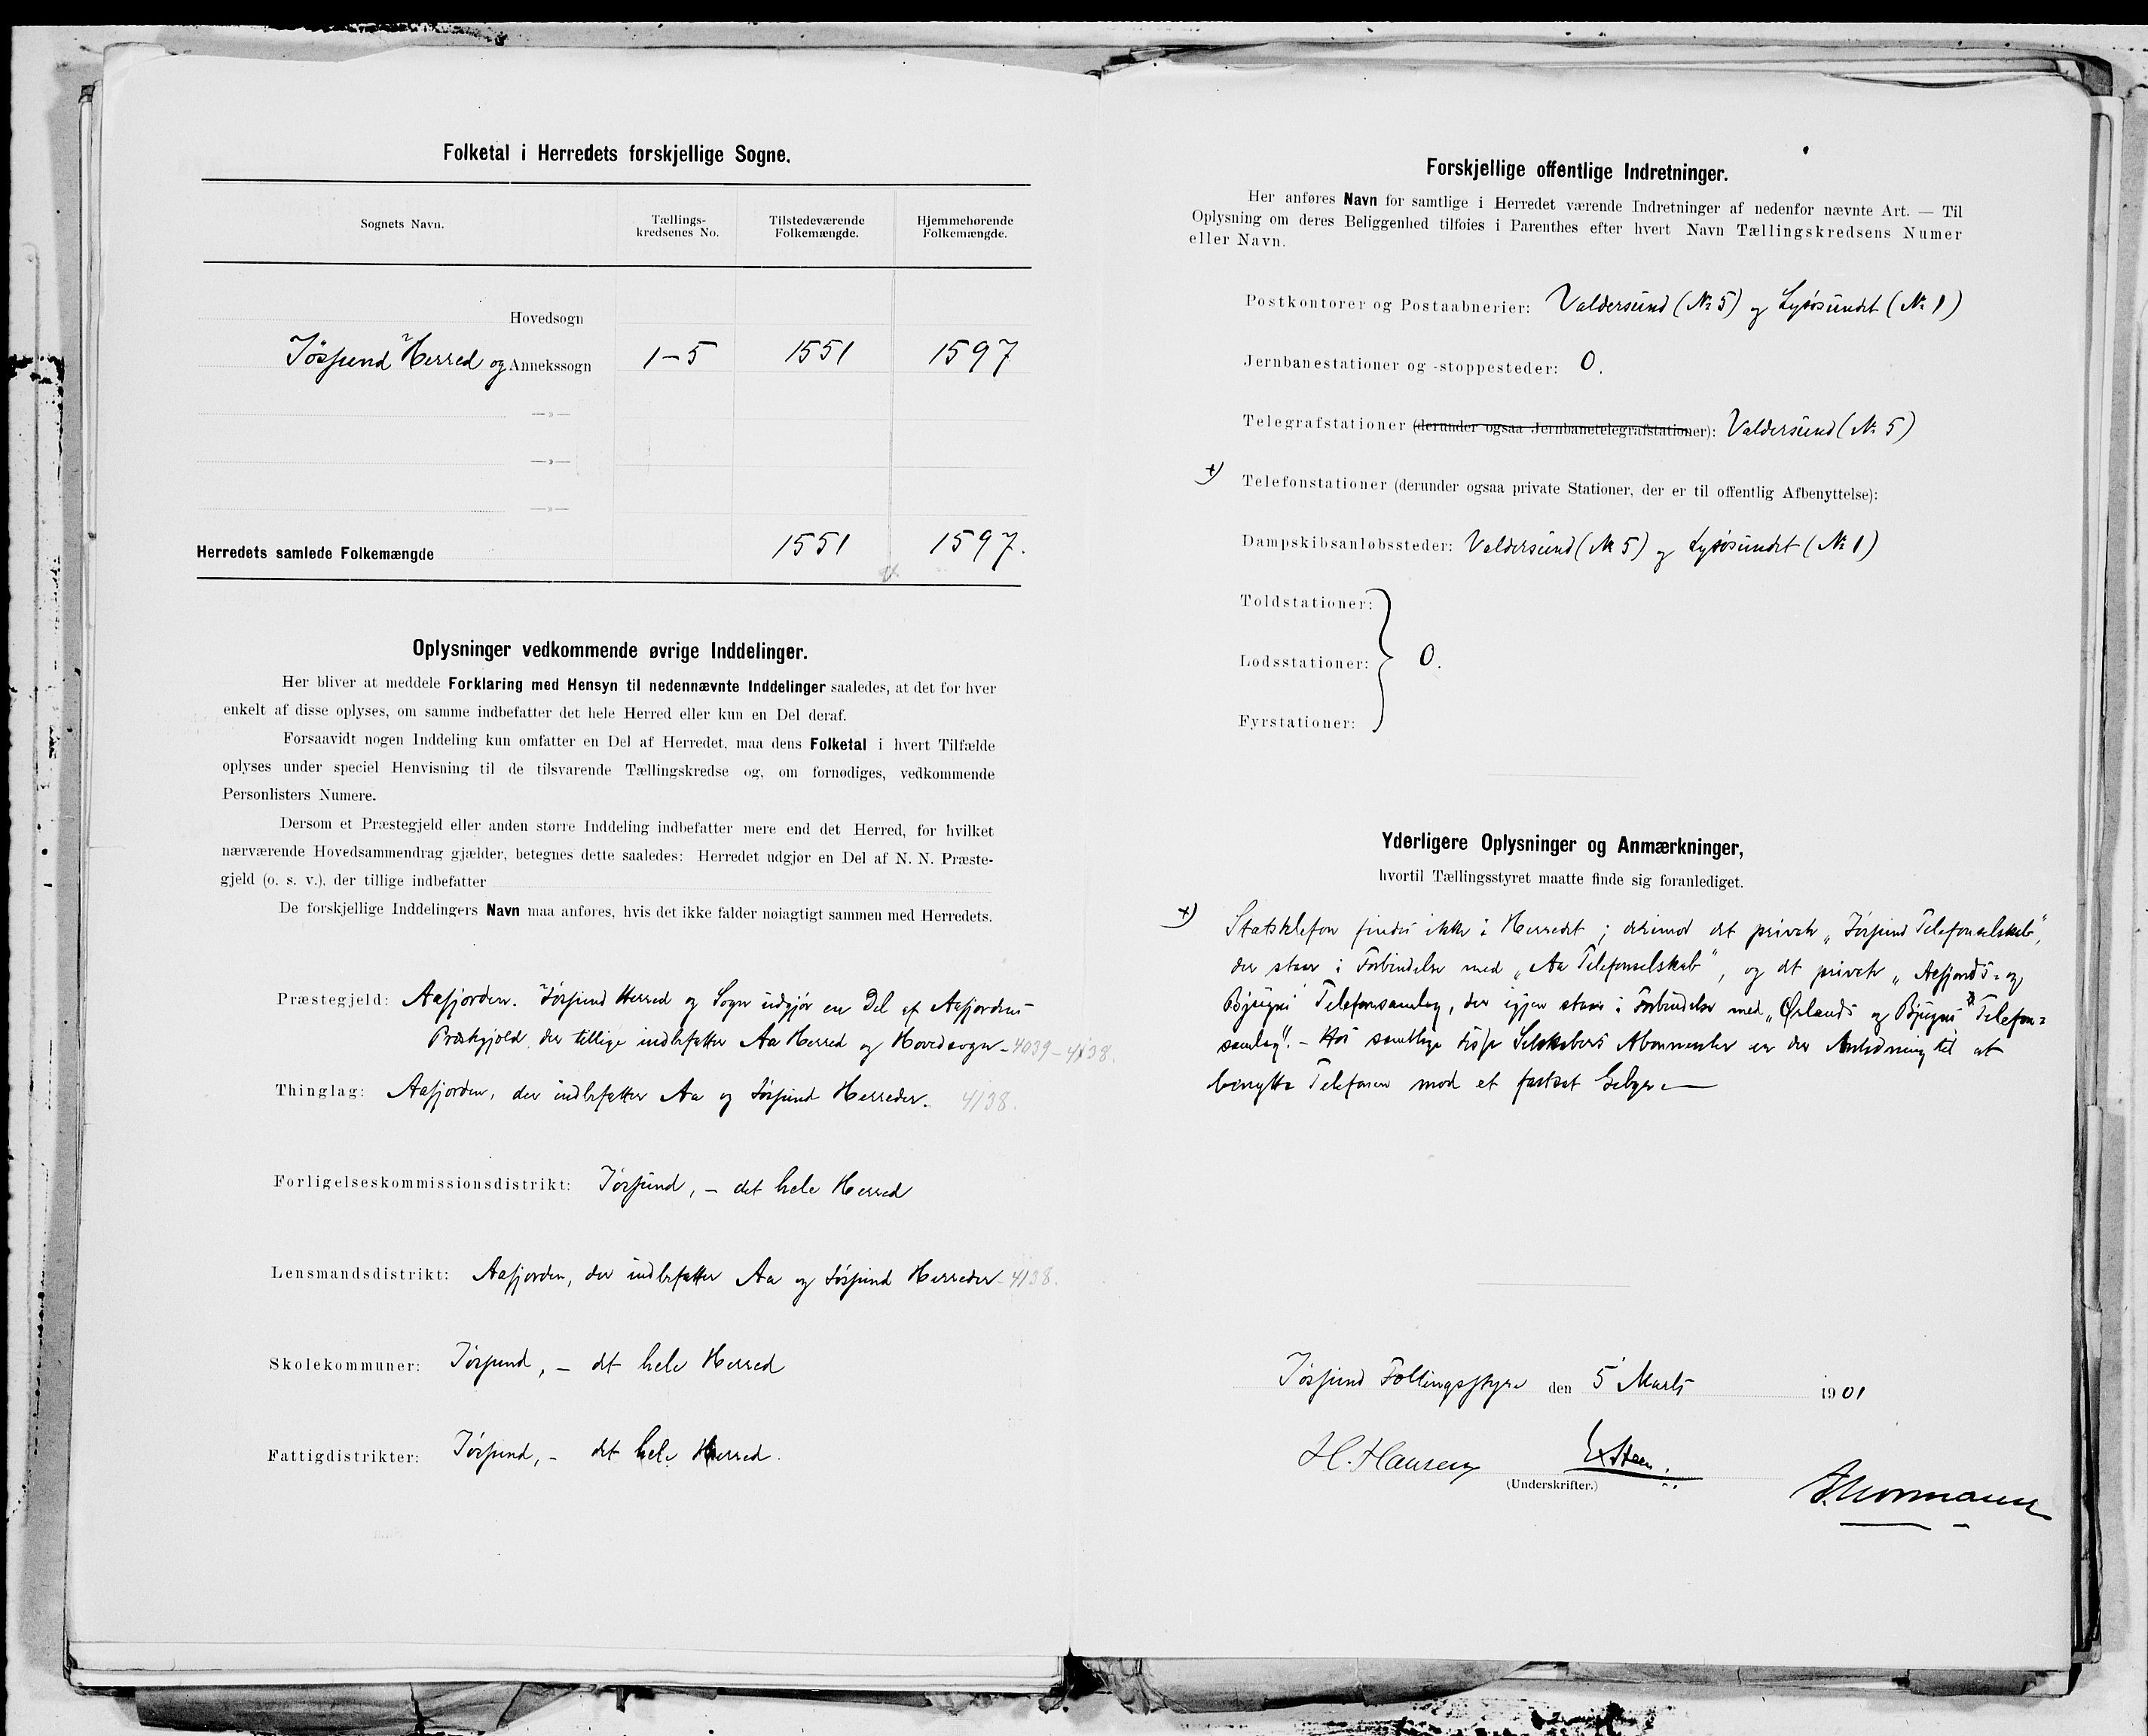 Folketal i Herredets forskjellige Sogne.
Sognets Navn.
Tællings-
kredsenes No.
Tilstedeværende
Folkemængde.
Hjemmehørende
Folkemængde.
Hovedsogn
Jøssund Herred og Annekssogn 1-5 1551 1597
—»—
—»—
—»—
Herredets samlede Folkemængde 1551 1597.
Oplysninger vedkommende øvrige Inddelinger.
Her bliver at meddele Forklaring med Hensyn til nedennævnte Inddelinger saaledes, at det for hver
enkelt af disse oplyses, om samme indbefatter det hele Herred eller kun en Del deraf.
Forsaavidt nogen Inddeling kun omfatter en Del af Herredet, maa dens Folketal i hvert Tilfælde
oplyses under speciel Henvisning til de tilsvarende Tællingskredse og, om fornødiges, vedkommende
Personlisters Numere.
Dersom et Præstegjeld eller anden større Inddeling indbefatter mere end det Herred, for hvilket
nærværende Hovedsammendrag gjælder, betegnes dette saaledes: Herredet udgjør en Del af N. N. Præste-
gjeld (o. s. v.), der tillige indbefatter
De forskjellige Inddelingers Navn maa anføres, hvis det ikke falder nøiagtigt sammen med Herredets.
Præstegjeld: Aafjorden. Jøssund Herred og Sogn udgjør en Del af Aafjordens
Præstegjeld, der tillige indbefatter Aa Herred og Hovedsogn - 4039 - 4138.
Thinglag: Aafjorden, der indbefatter Aa og Jøssund Herreder. 4138.
Forligelseskommissionsdistrikt: Jøssund, - det hele Herred
Lensmandsdistrikt: Aafjorden, der indbefatter Aa og Jøssund Herreder - 4138.
Skolekommuner: Jøssund, - det hele Herred
Fattigdistrikter: Jøssund, - det hele Herred.
Forskjellige offentlige Indretninger.
Her anføres Navn for samtlige i Herredet værende Indretninger af nedenfor nævnte Art. — Til
Oplysning om deres Beliggenhed tilføies i Parenthes efter hvert Navn Tællingskredsens Numer
eller Navn.
Postkontorer og Postaabnerier: Valdersund (№ 5) og Lysøsundet (№ 1)
Jernbanestationer og -stoppesteder: 0.
Telegrafstationer (derunder ogsaa Jernbanetelegrafstationer): Valdersund (№ 5)
+) Telefonstationer (derunder ogsaa private Stationer, der er til offentlig Afbenyttelse):
Dampskibsanløbssteder: Valdersund (№ 5) og Lysøsundet (№ 1)
Toldstationer:
Lodsstationer: 0.
Fyrstationer:
Yderligere Oplysninger og Anmærkninger,
hvortil Tællingsstyret maatte finde sig foranlediget.
+) Statstelefon findes ikke i Herredet; derimod det private „Jøssund Telefonselskab",
der staar i Forbindelse med „Aa Telefonselskab", og det private „Aafjords- og
Bjugns Telefonsamlag, der igjen staar i Forbindelse med „Ørlands og Bjugns Telefon-
samlag". - Hos samtlige disse Selskabers Abonnenter er der Anledning til at
benytte Telefonen mod et fastsat Gebyr. —
Jøssund Tællingsstyre den 5 Marts 1901
H. Hansen
(Underskrifter.)